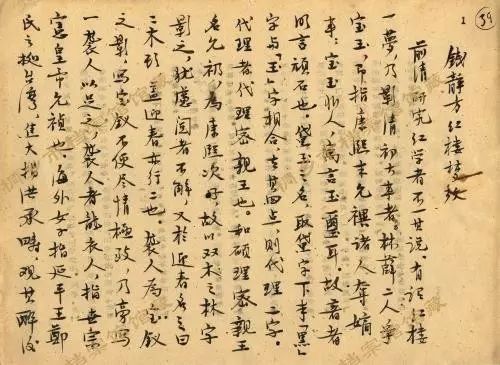 39
1
錢静方红楼梦攷
前清研究红学者不一其说,有谓红楼
一梦,乃影清初大事者。林薛二人争
宝玉,即指康熙末允禩诸人夺嫡
事。宝玉非人,寓言玉璽耳。故著者
明言頑石也。黛玉之名,取黛字下半「黑」
字与「玉」字相合,去其四点,则代理二字。
代理者代理密親王也。和碩理密親王
名允礽,為康熙次子,故以双木之林字
影之,犹虑阅者不解,又於迎春名之曰
二木头,盖迎春亦行二也。袭人为宝釵
之影,写宝釵不便尽情極致,乃旁写
一襲人以足之,襲人者龍衣人,指世宗
憲皇帝允禛也。海外女子指延平王鄭
氏之拠台湾,焦大指洪承疇,观其醉后